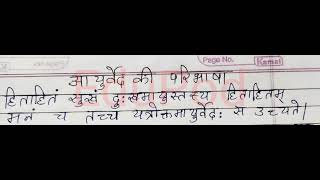 Page No.
Kamal
आयुर्वेद की परिभाषा
हिताहितं सुखं दुःखमायुस्तस्य हिताहितम्
मनं च तच्च यत्रोक्तमायुर्वेदः स उच्यते।